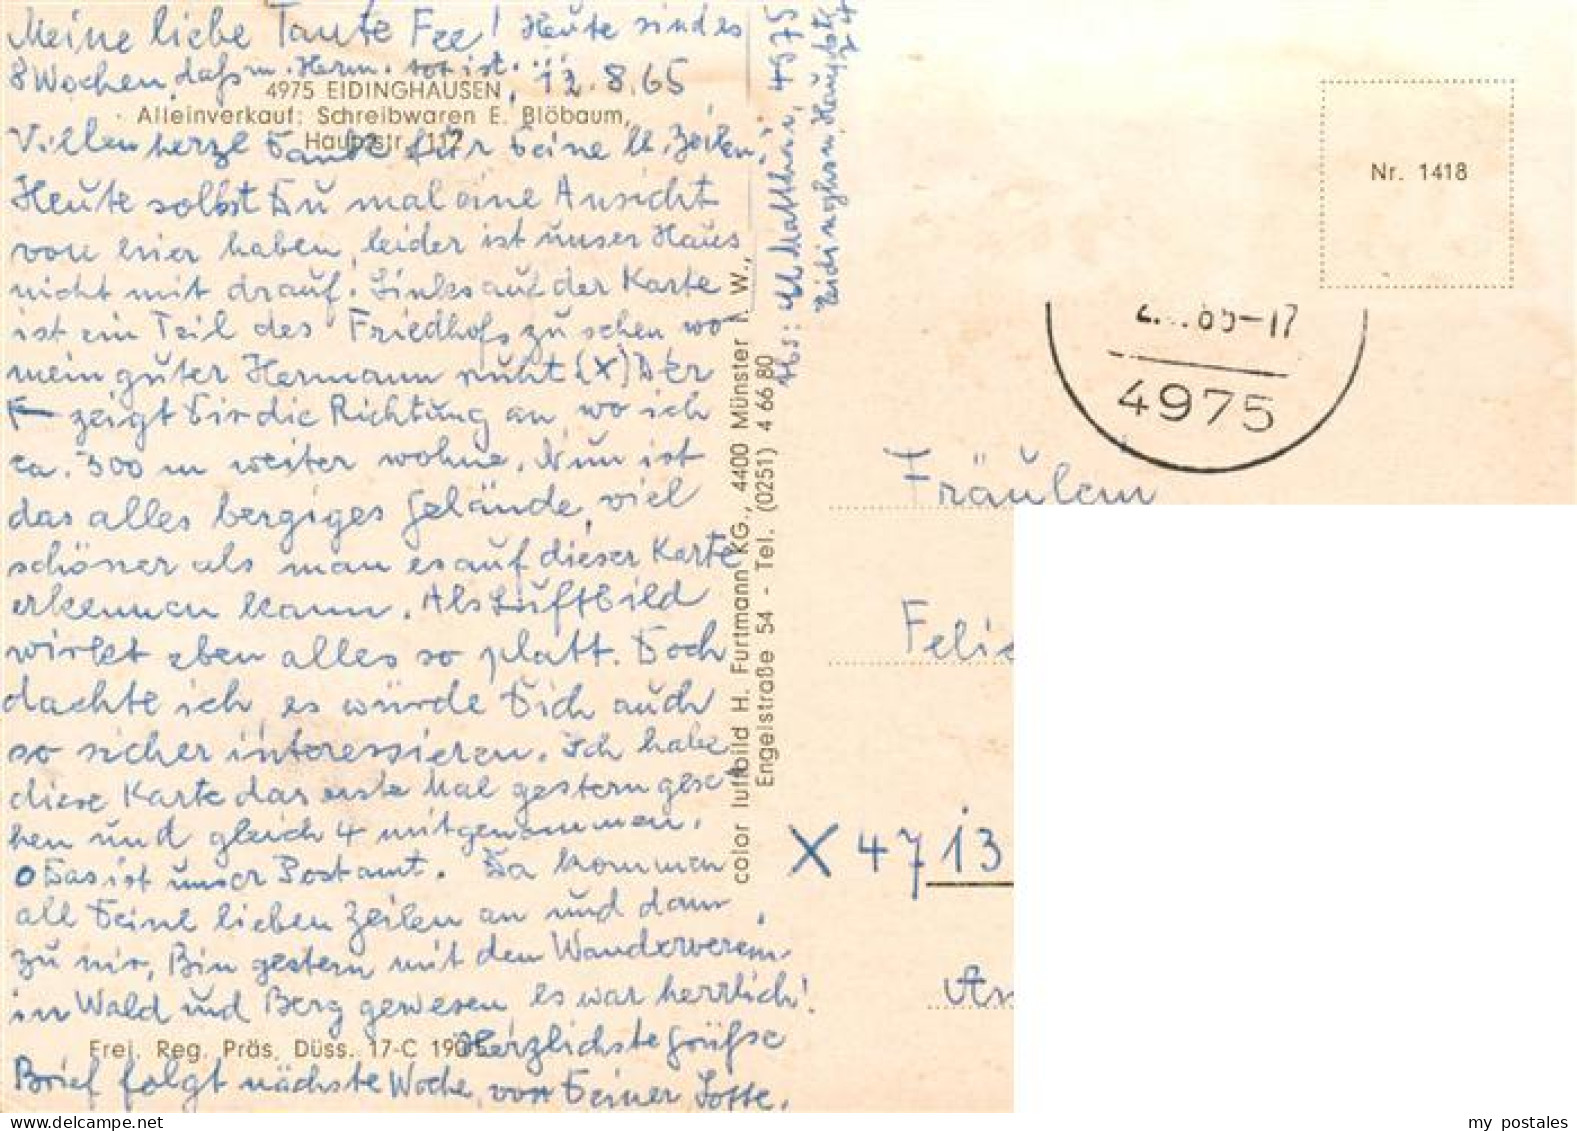 Meine liebe Tante Fee! Heute sind es
8 Wochen, daß m. Herm. tot ist. 12.8.65
4975 EIDINGHAUSEN,
Alleinverkauf: Schreibwaren E. Blöbaum,
Hauptstr. 112
Villen herzl Dank für Deine lb. Zeilen!
Heute sollst Du mal eine Ansicht
von hier haben, leider ist unser Haus
nicht mit drauf. Links auf der Karte
ist ein Teil des Friedhofs zu sehen wo
mein guter Hermann ruht (X) Der
← zeigt Dir die Richtung an, wo ich
ca. 300 m weiter wohne. Nun ist
das alles bergiges Gelände, viel
schöner als man es auf dieser Karte
erkennen kann. Als Luftbild
wirket eben alles so platt. Doch
dachte ich es würde Dich auch
so sicher interessieren. Ich habe
diese Karte das erste Mal gestern gese
hen und gleich 4 mitgenommen.
o Das ist unser Postamt. Da kommen
all Deine lieben Zeilen an und dann
zu mir, Bin gestern mit den Wanderverein
in Wald und Berg gewesen, es war herrlich!
Frei. Reg. Präs. Düss. 17-C 1905
Herzlichste Grüße
Brief folgt nächste Woche, von Deiner Lotte.
color luftbild H. Furtmann KG., 4400 Münster i. W.,
Engelstraße 54 - Tel. (0251) 4 66 80
Abs: Matthäi, 4975
Eidinghsn Hauptstr
Nr. 1418
4975
Fräulein
Felic
X 4713
An
my postales